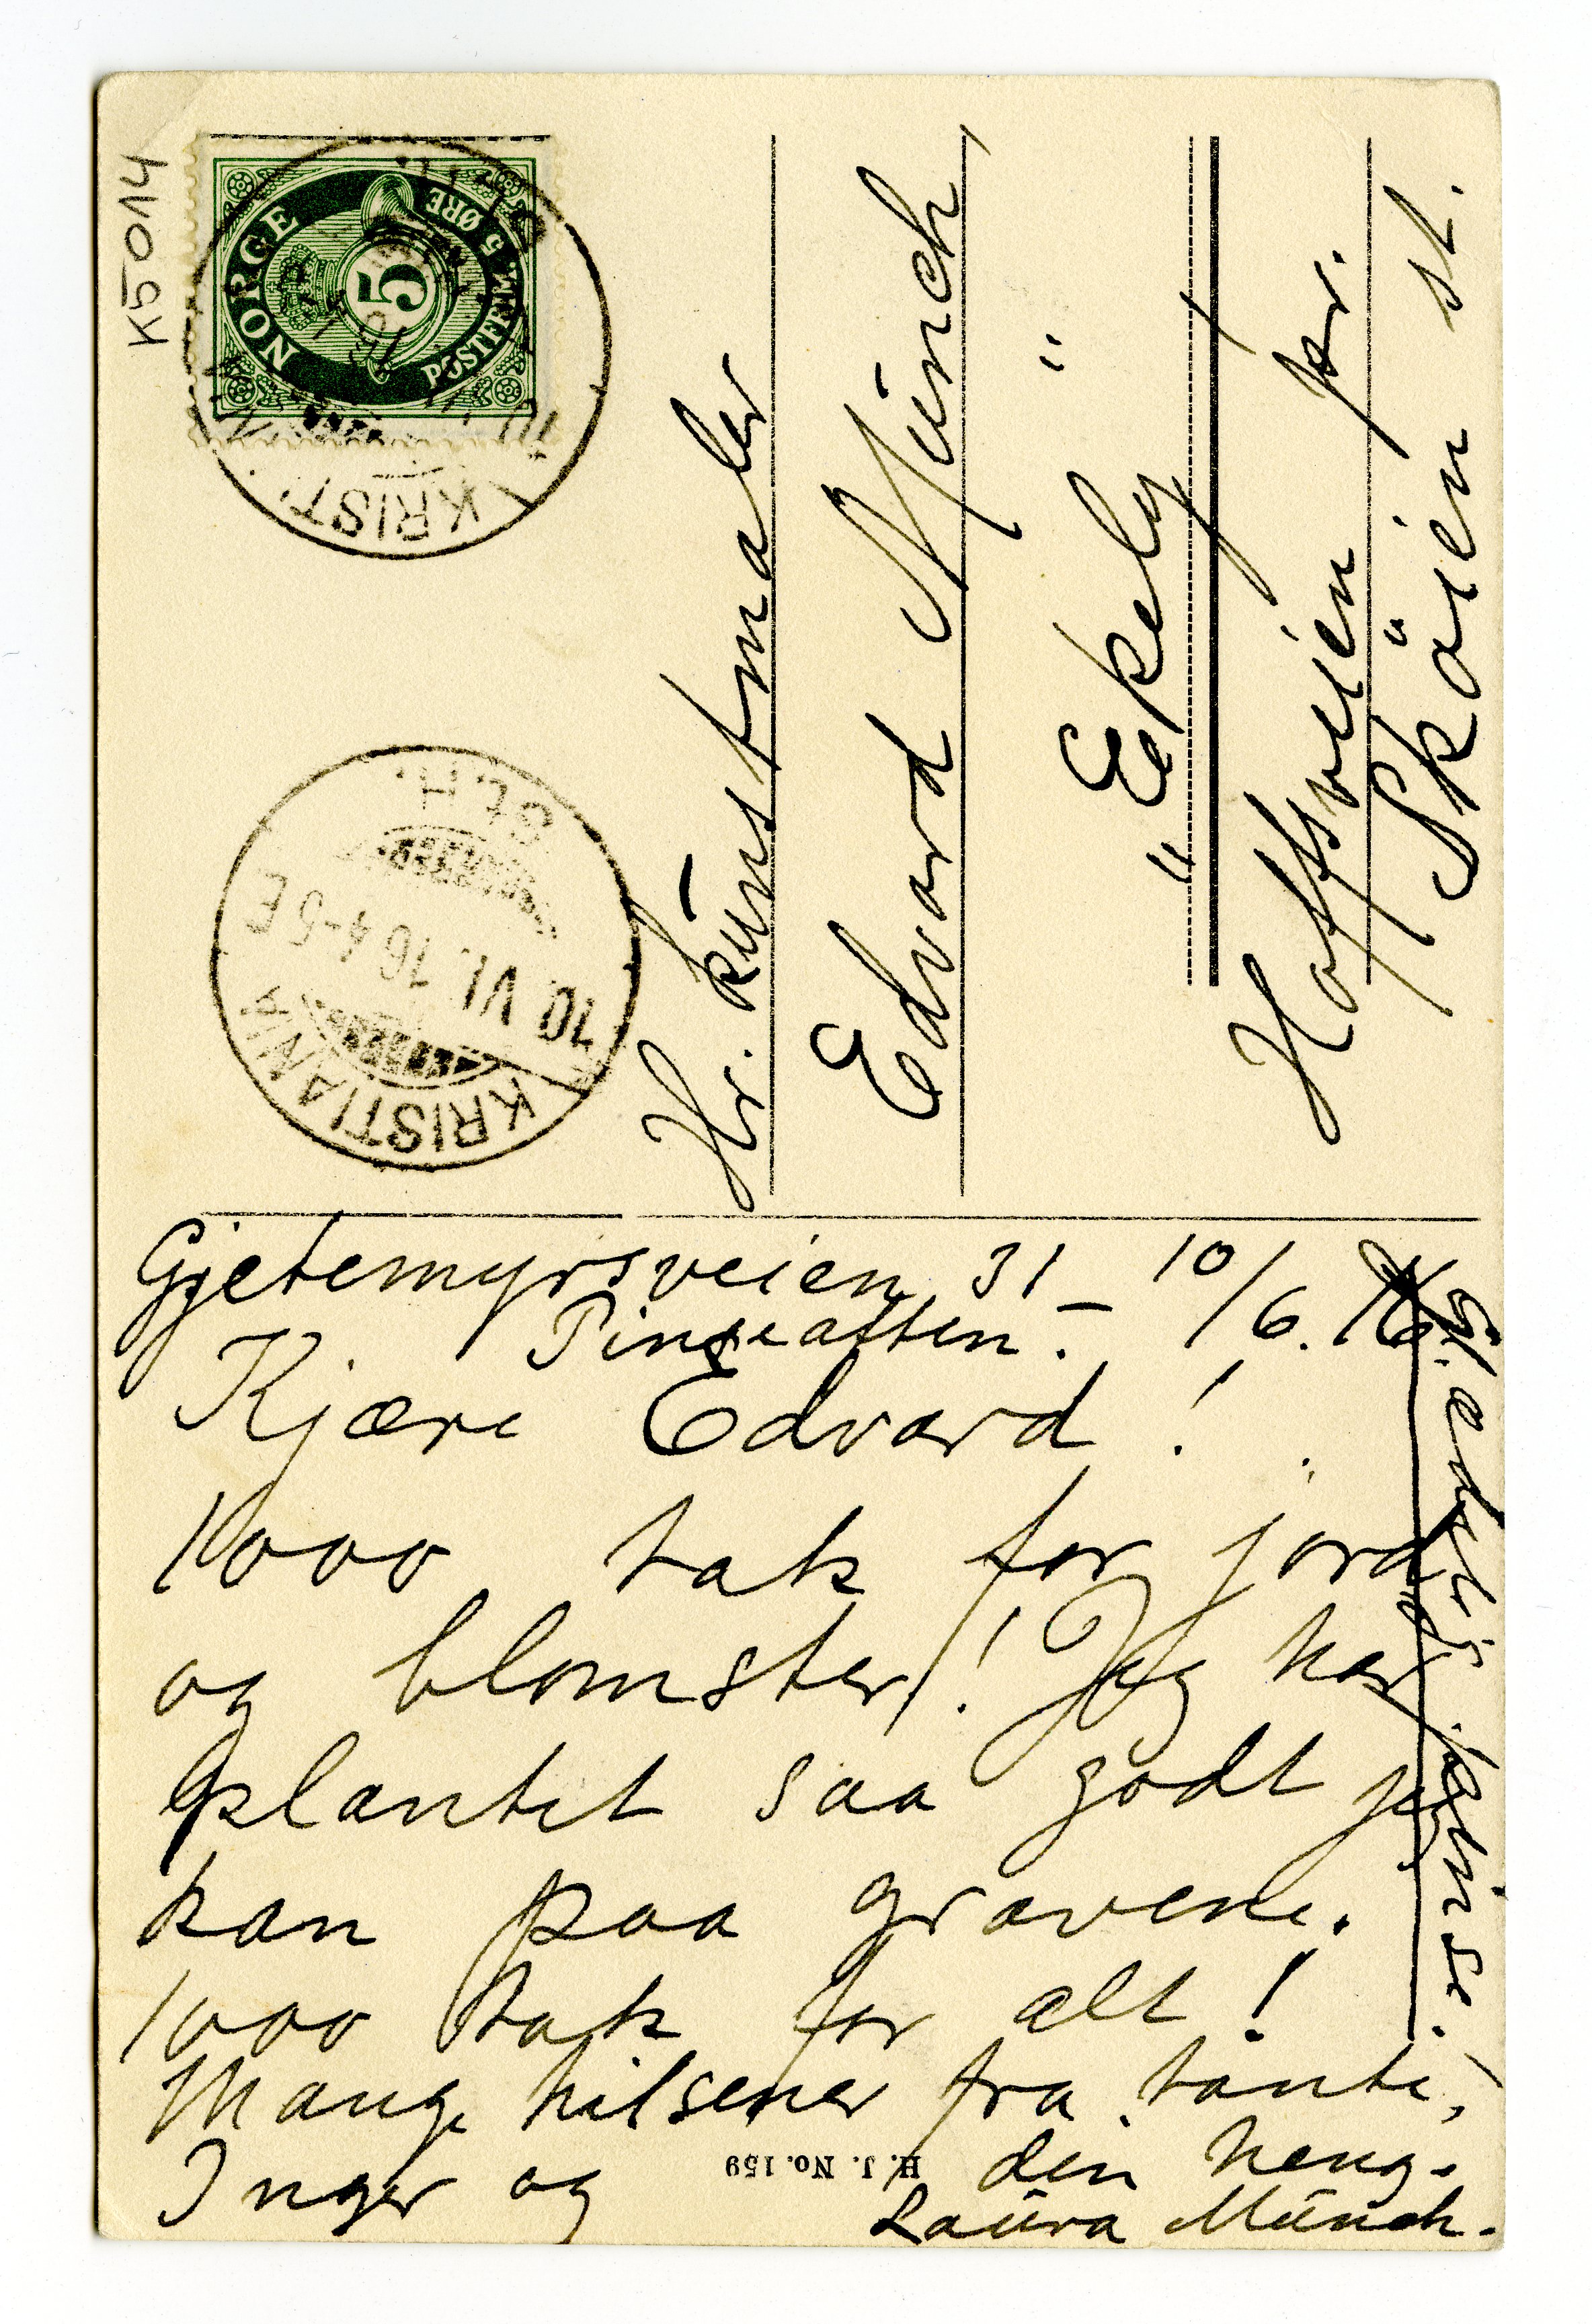 K5014
NORGE
POSTFRIM. 5 ØRE
5
KRIST
KRISTIANIA
10 VI. 16 4-5 E
St. H.
Hr. kunstmaler
Edvard Munch
"Ekely"
Hoffsveien pr.
Skøien st.
Gjetemyrsveien 31 10/6. 16
Pinseaften. –
Kjære Edvard!
1000 tak for jord
og blomster! Jeg har
plantet saa godt jeg
kan paa gravene.
1000 tak for alt!
Mange hilsener fra tante,
Inger og din heng.
Laura Munch.
Gl. ædelig pinse!
H. J. No. 159